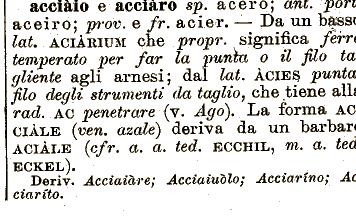 acciàio e acciàro sp. acero; ant. port
aceiro; prov. e fr. acier. — Da un basso
lat. ACIÀRIUM che propr. significa ferro
temperato per far la punta o il filo ta
gliente agli arnesi; dal lat. ÀCIES punta
filo degli strumenti da taglio, che tiene alla
rad. AC penetrare (v. Ago). La forma AC
CIÀLE (ven. azale) deriva da un barbaro
ACIÀLE (cfr. a. a. ted. ECCHIL, m. a. ted
ECKEL).
Deriv. Acciaiàre; Acciaiuòlo; Acciaríno; Ac
ciaríto.